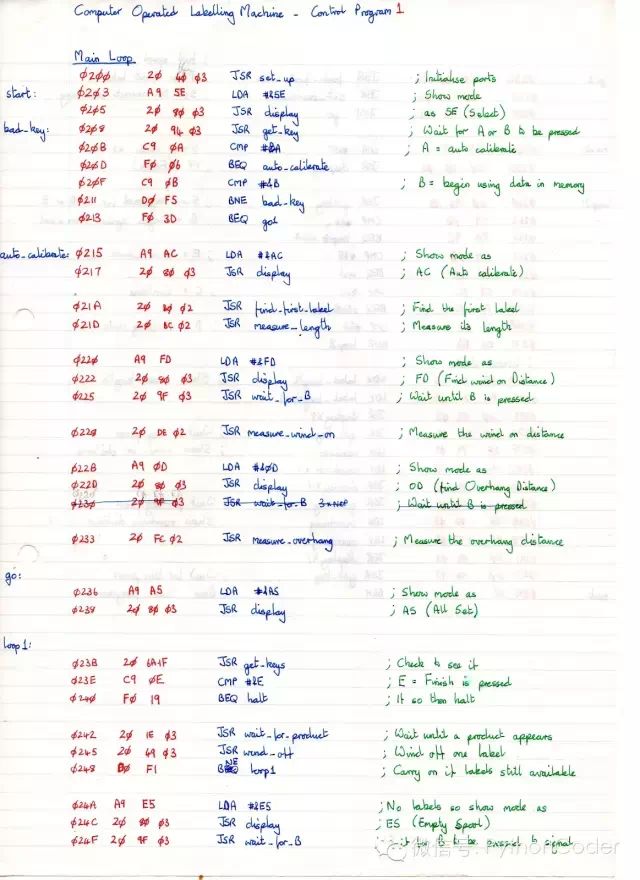 Computer Operated Labelling Machine - Control Program 1
Main Loop
0200 20 40 03 JSR set_up ; Initialise ports
start: 0203 A9 5E LDA #&5E ; Show mode
0205 20 80 03 JSR display ; as SE (Select)
bad_key: 0208 20 94 03 JSR get_key ; Wait for A or B to be pressed
020B C9 0A CMP #&A ; A = auto calibrate
020D F0 06 BEQ auto_calibrate
020F C9 0B CMP #&B ; B = begin using data in memory
0211 D0 F5 BNE bad_key
0213 F0 3D BEQ go1
auto_calibrate: 0215 A9 AC LDA #&AC ; Show mode as
0217 20 80 03 JSR display ; AC (Auto calibrate)
021A 20 02 JSR find_first_label ; Find the first label
021D 20 BC 02 JSR measure_length ; Measure its length
0220 A9 FD LDA #&FD ; Show mode as
0222 20 80 03 JSR display ; FD (Find wind on Distance)
0225 20 9F 03 JSR wait_for_B ; Wait until B is pressed
0228 20 DE 02 JSR measure_wind_on ; Measure the wind on distance
022B A9 0D LDA #&0D ; Show mode as
022D 20 80 03 JSR display ; OD (find Overhang Distance)
0230 20 9F 03 JSR wait_for_B 3xNOP ; Wait until B is pressed
0233 20 FC 02 JSR measure_overhang ; Measure the overhang distance
go:
0236 A9 A5 LDA #&A5 ; Show mode as
0238 20 80 03 JSR display ; AS (All Set)
loop1:
023B 20 6A 1F JSR get_keys ; Check to see if
023E C9 0E CMP #&E ; E = Finish is pressed
0240 F0 19 BEQ halt ; If so then halt
0242 20 1E 03 JSR wait_for_product ; Wait until a product appears
0245 20 69 03 JSR wind_off ; Wind off one label
0248 D0 F1 BNE loop1 ; Carry on if labels still available
024A A9 E5 LDA #&E5 ; No labels so show mode as
024C 20 80 03 JSR display ; ES (Empty Spool)
024F 20 9F 03 JSR wait_for_B ; Wait for B to be pressed to signal
微信号: PythonCoder